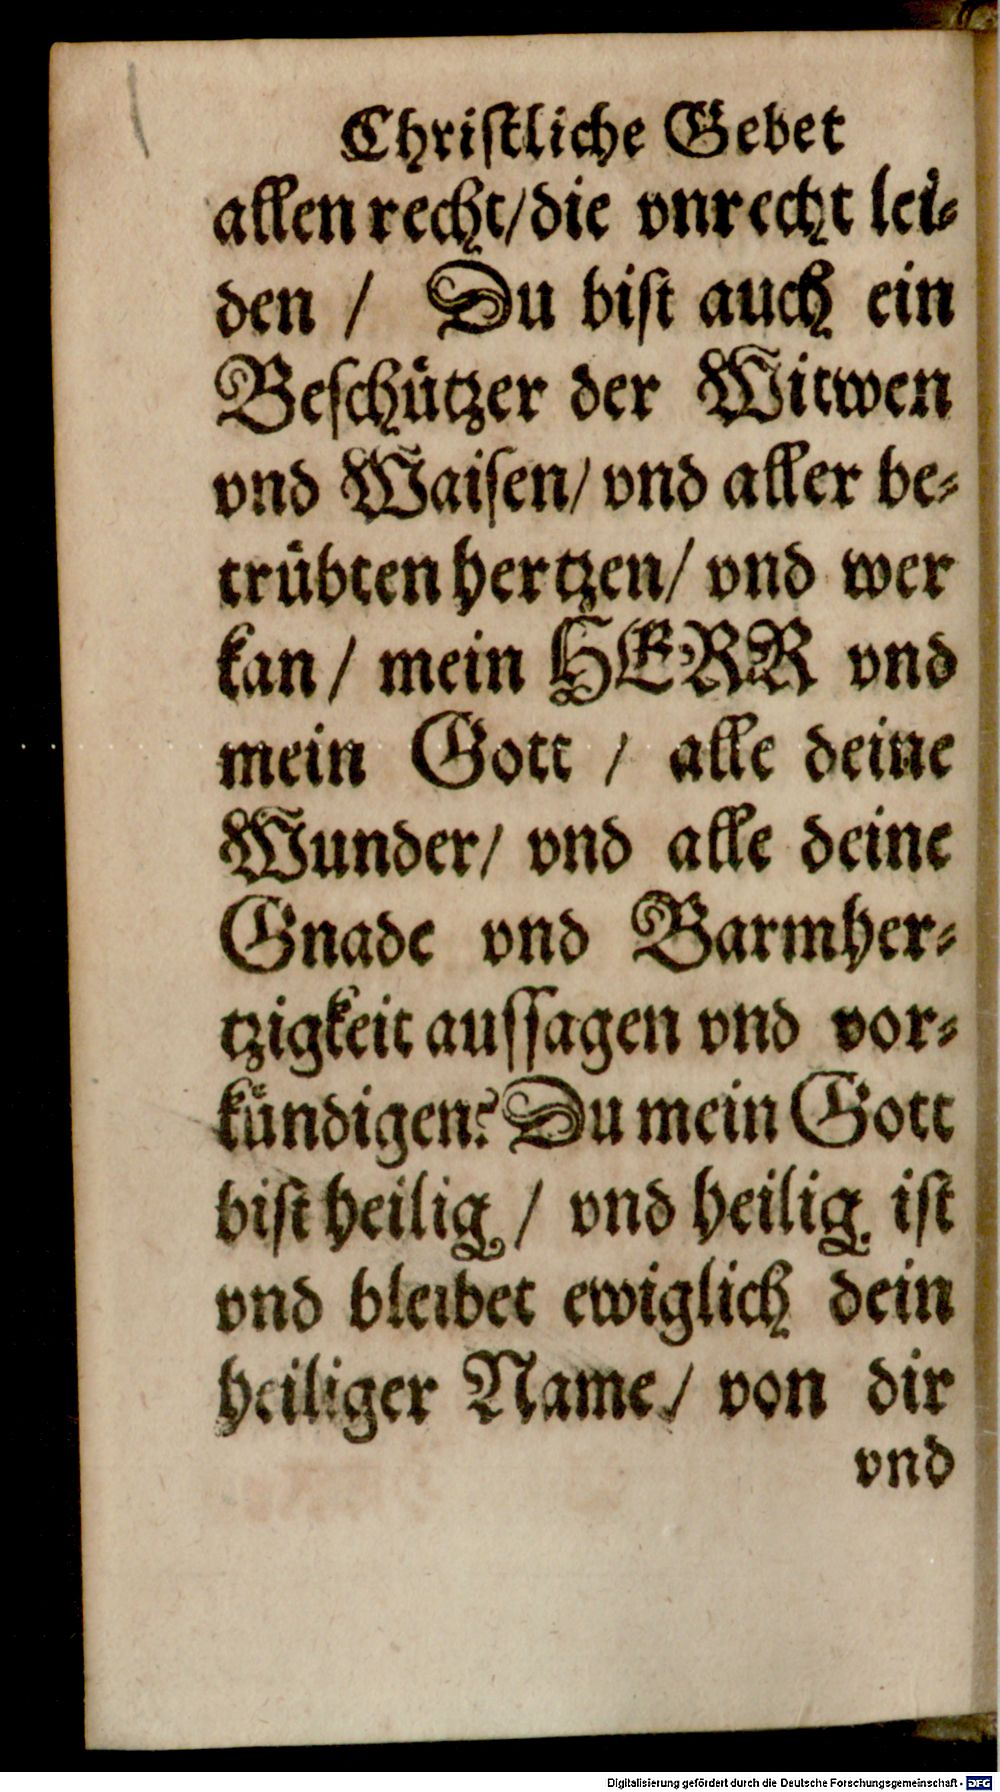 Chriſtliche Gebet
allen recht/die vnrecht lei-
den / Du biſt auch ein
Beſchuͤtzer der Witwen
vnd Waiſen/ vnd aller be-
truͤbten hertzen/ vnd wer
kan/ mein HERR vnd
mein Gott / alle deine
Wunder/ vnd alle deine
Gnade vnd Barmher-
tzigkeit auſſagen vnd vor-
kuͤndigen? Du mein Gott
biſt heilig / vnd heilig iſt
vnd bleibet ewiglich dein
heiliger Name/ von dir
vnd
Digitalisierung gefördert durch die Deutsche Forschungsgemeinschaft - DFG